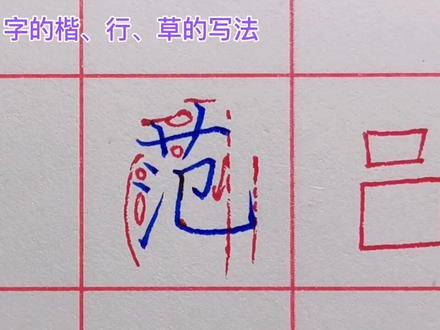 字的楷、行、草的写法
范